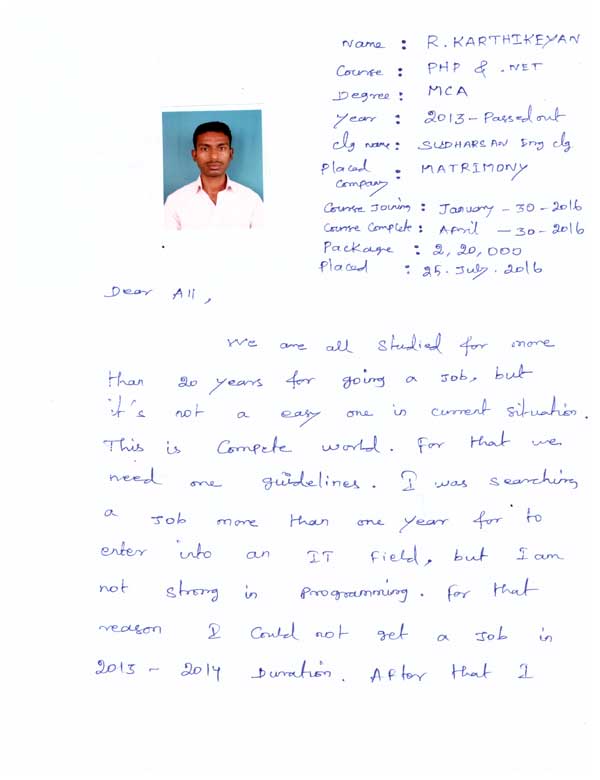 Name : R. KARTHIKEYAN
Course : PHP & .NET
Degree : MCA
Year : 2013 - Passed out
clg name : SUDHARSAN Eng clg
Placed Company : MATRIMONY
Course Joining : January - 30 - 2016
Course Complete : April - 30 - 2016
Package : 2,20,000
Placed : 25. July. 2016
Dear All,
We are all studied for more
than 20 years for going a job, but
it's not a easy one in current situation.
This is Compete world. For that we
need one guidelines. I was searching
a Job more than one year for to
enter into an IT Field, but I am
not strong in Programming. For that
reason I Could not get a Job in
2013 - 2014 Duration. After that I